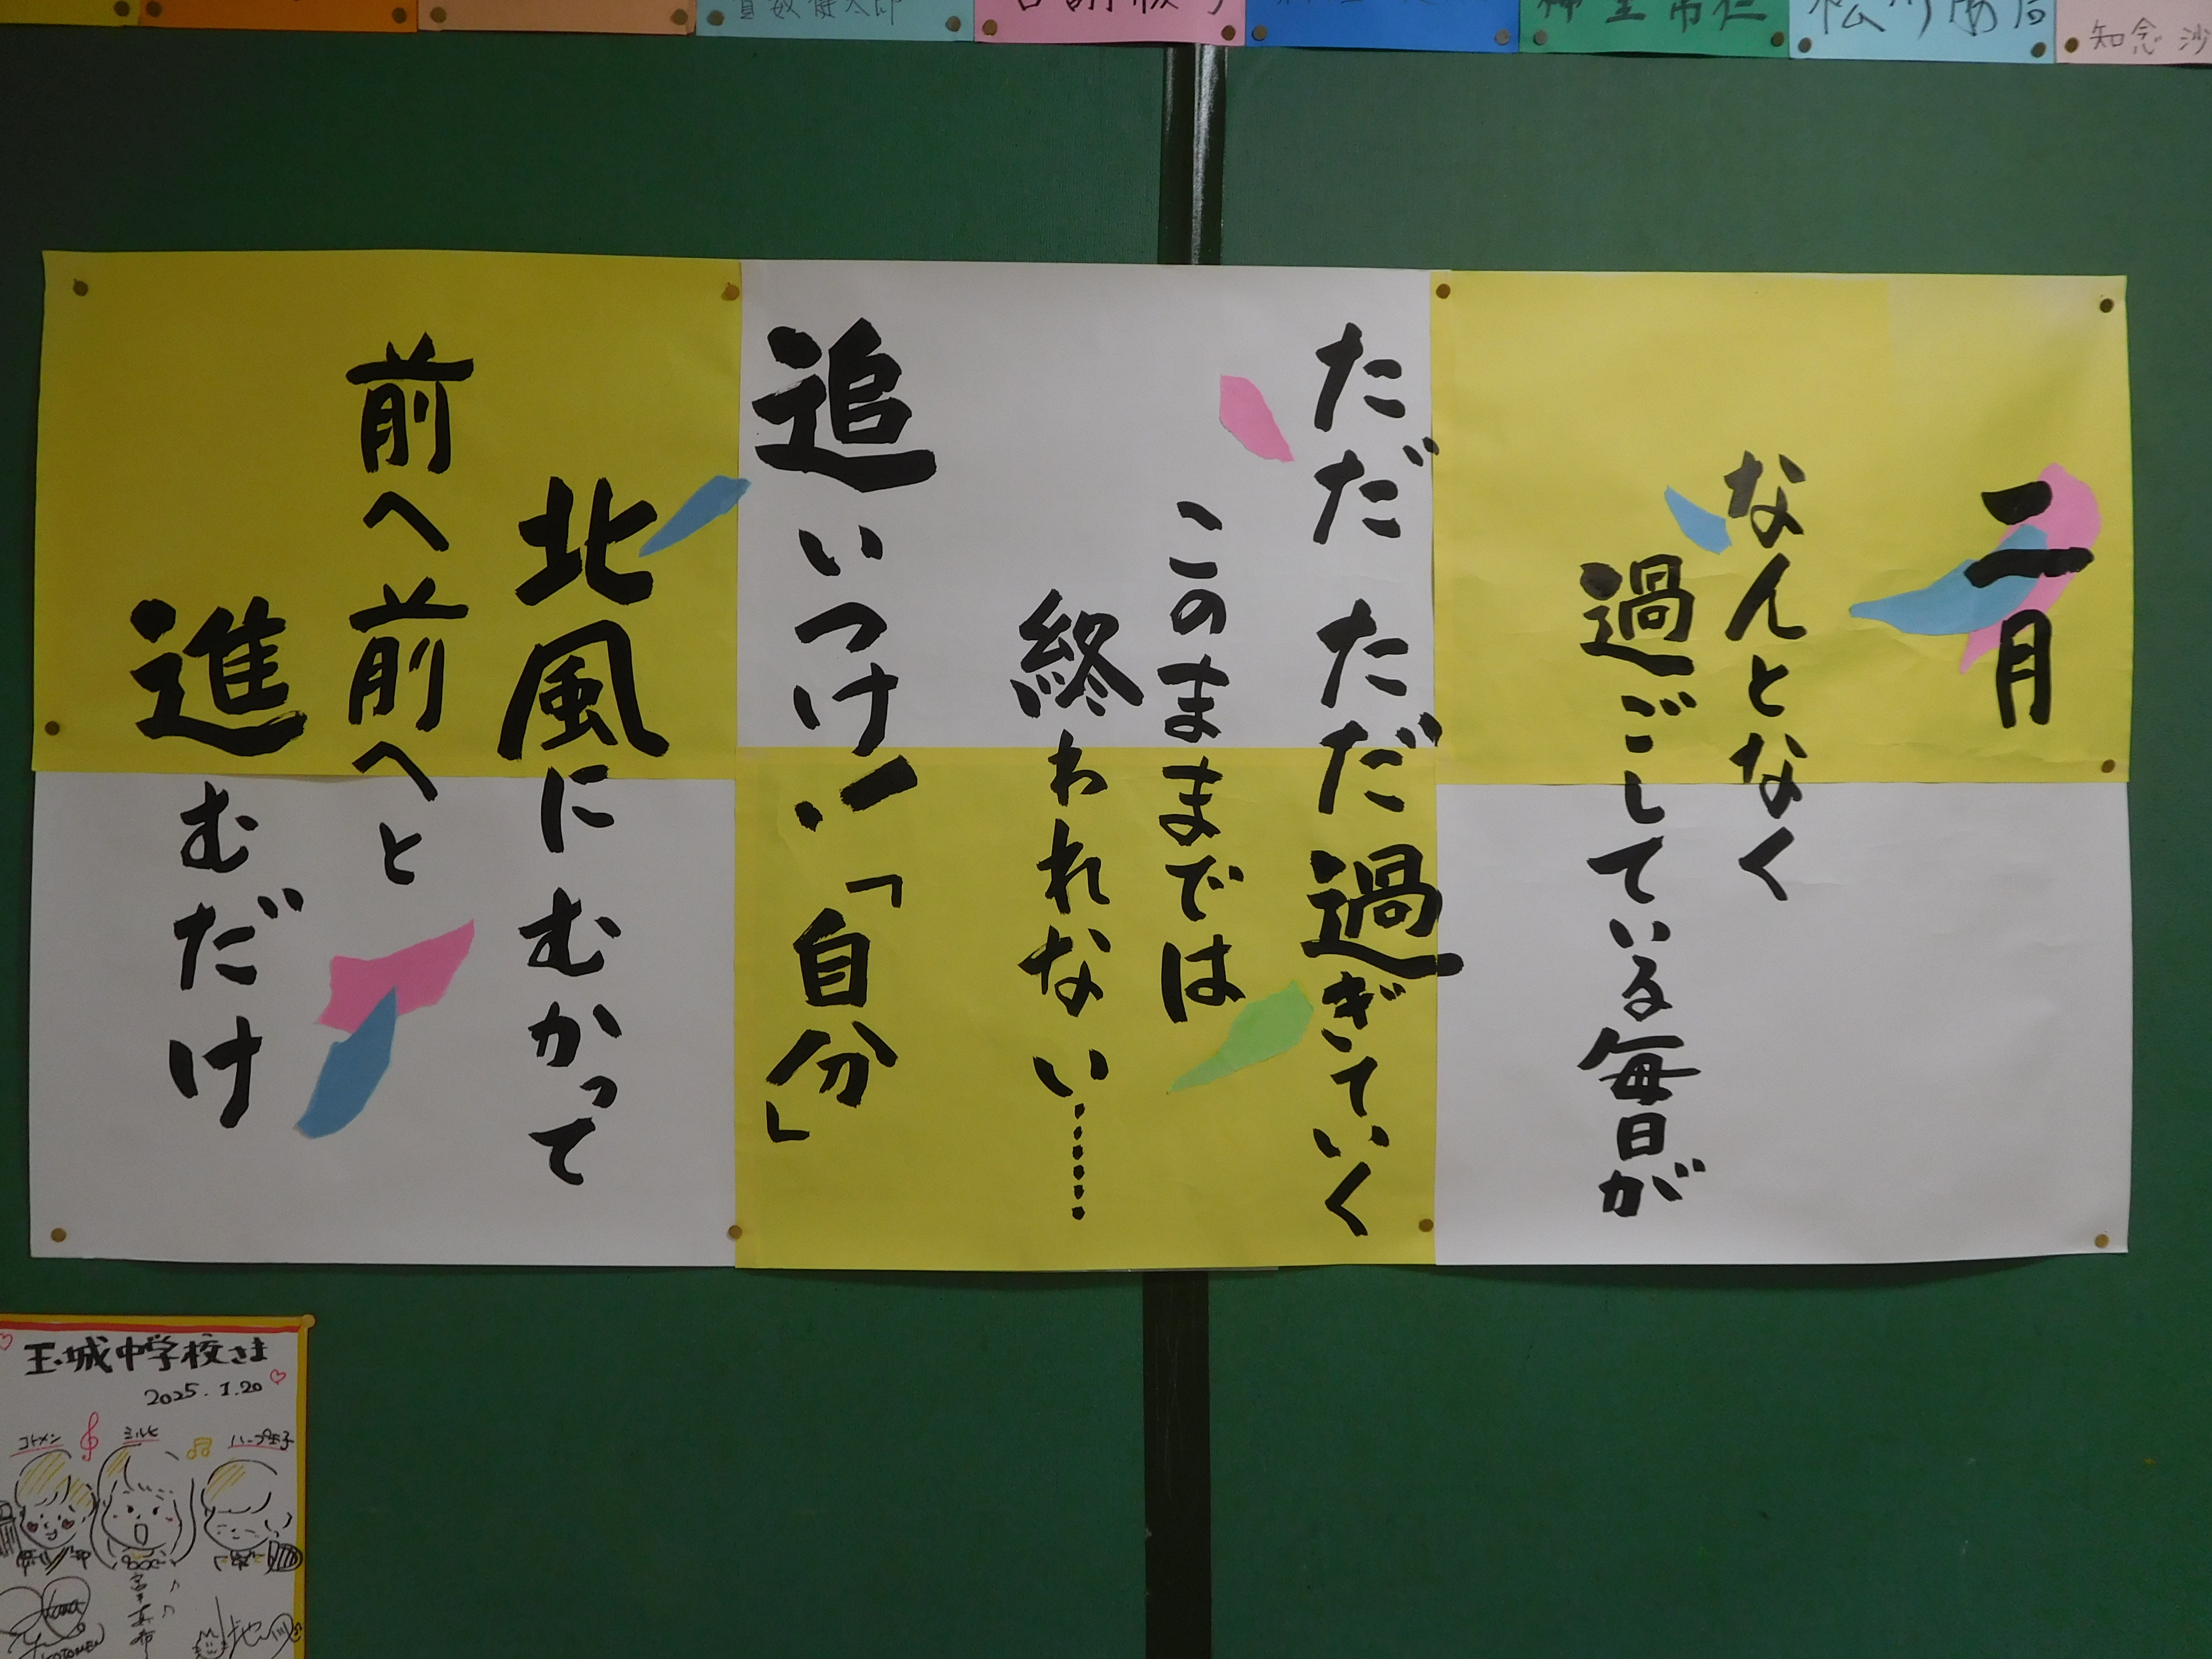 二月
なんとなく
過ごしている毎日が
ただ ただ過ぎていく
このままでは
終われない……
追いつけ!「自分」
北風に むかって
前へ前へと
進むだけ
知念 沙
玉城中学校さま
2025.1.20
コトメン
ミルヒ